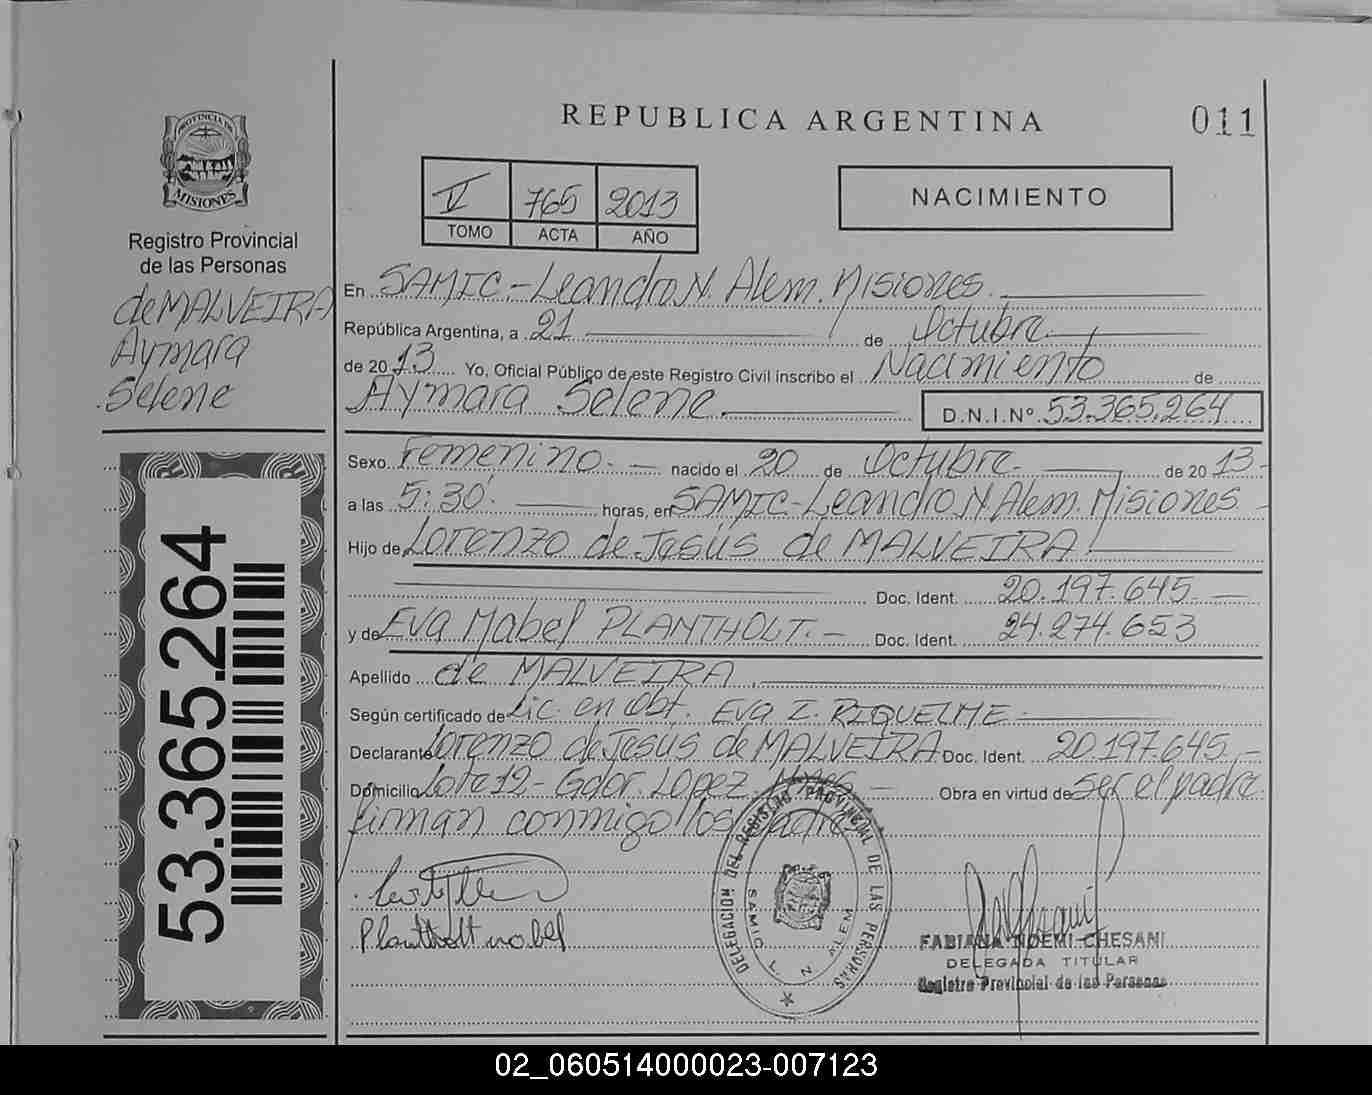 REPUBLICA ARGENTINA
011
PROVINCIA DE
MISIONES
Registro Provincial
de las Personas
de MALVEIRA
Aymara
Selene
53.365.264
V 765 2013
TOMO ACTA AÑO
NACIMIENTO
En SAMIC-Leandro N. Alem. Misiones.
República Argentina, a 21 de Octubre
de 2013 Yo, Oficial Público de este Registro Civil inscribo el Nacimiento de
Aymara Selene
D.N.I.Nº 53.365.264
Sexo Femenino. nacido el 20 de Octubre. de 2013-
a las 5:30' horas, en SAMIC-Leandro N Alem. Misiones
Hijo de Lorenzo de Jesús de MALVEIRA
Doc. Ident. 20.197.645.
y de Eva Mabel PLANTHOLT.- Doc. Ident. 24.274.653
Apellido de MALVEIRA.
Según certificado de Lic. en Obt. Eva I. RIQUELME.
Declarante Lorenzo de Jesus de MALVEIRA Doc. Ident. 20.197.645.-
Domicilio Lote 12- Gdor. Lopez. Mnes - Obra en virtud de ser el padre.
firman conmigo los padres
Plantholt mabel
DELEGACION DEL REGISTRO PROVINCIAL DE LAS PERSONAS
SAMIC L. N ALEM
FABIANA NOEMI CHESANI
DELEGADA TITULAR
Registro Provincial de las Personas
02_060514000023-007123